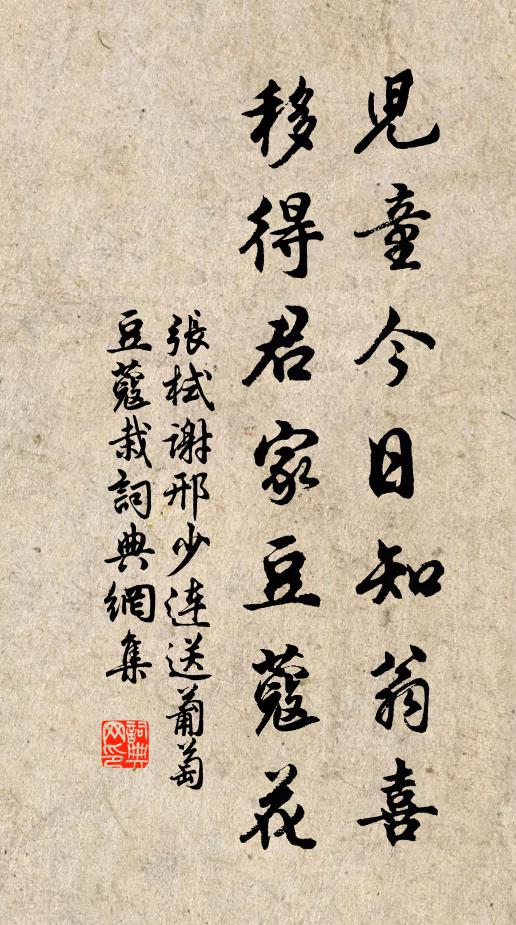 兒童今日知翁喜
移得君家豆蔻花
張栻謝邢少連送葡萄
豆蔻栽詞典網集
詞典網印